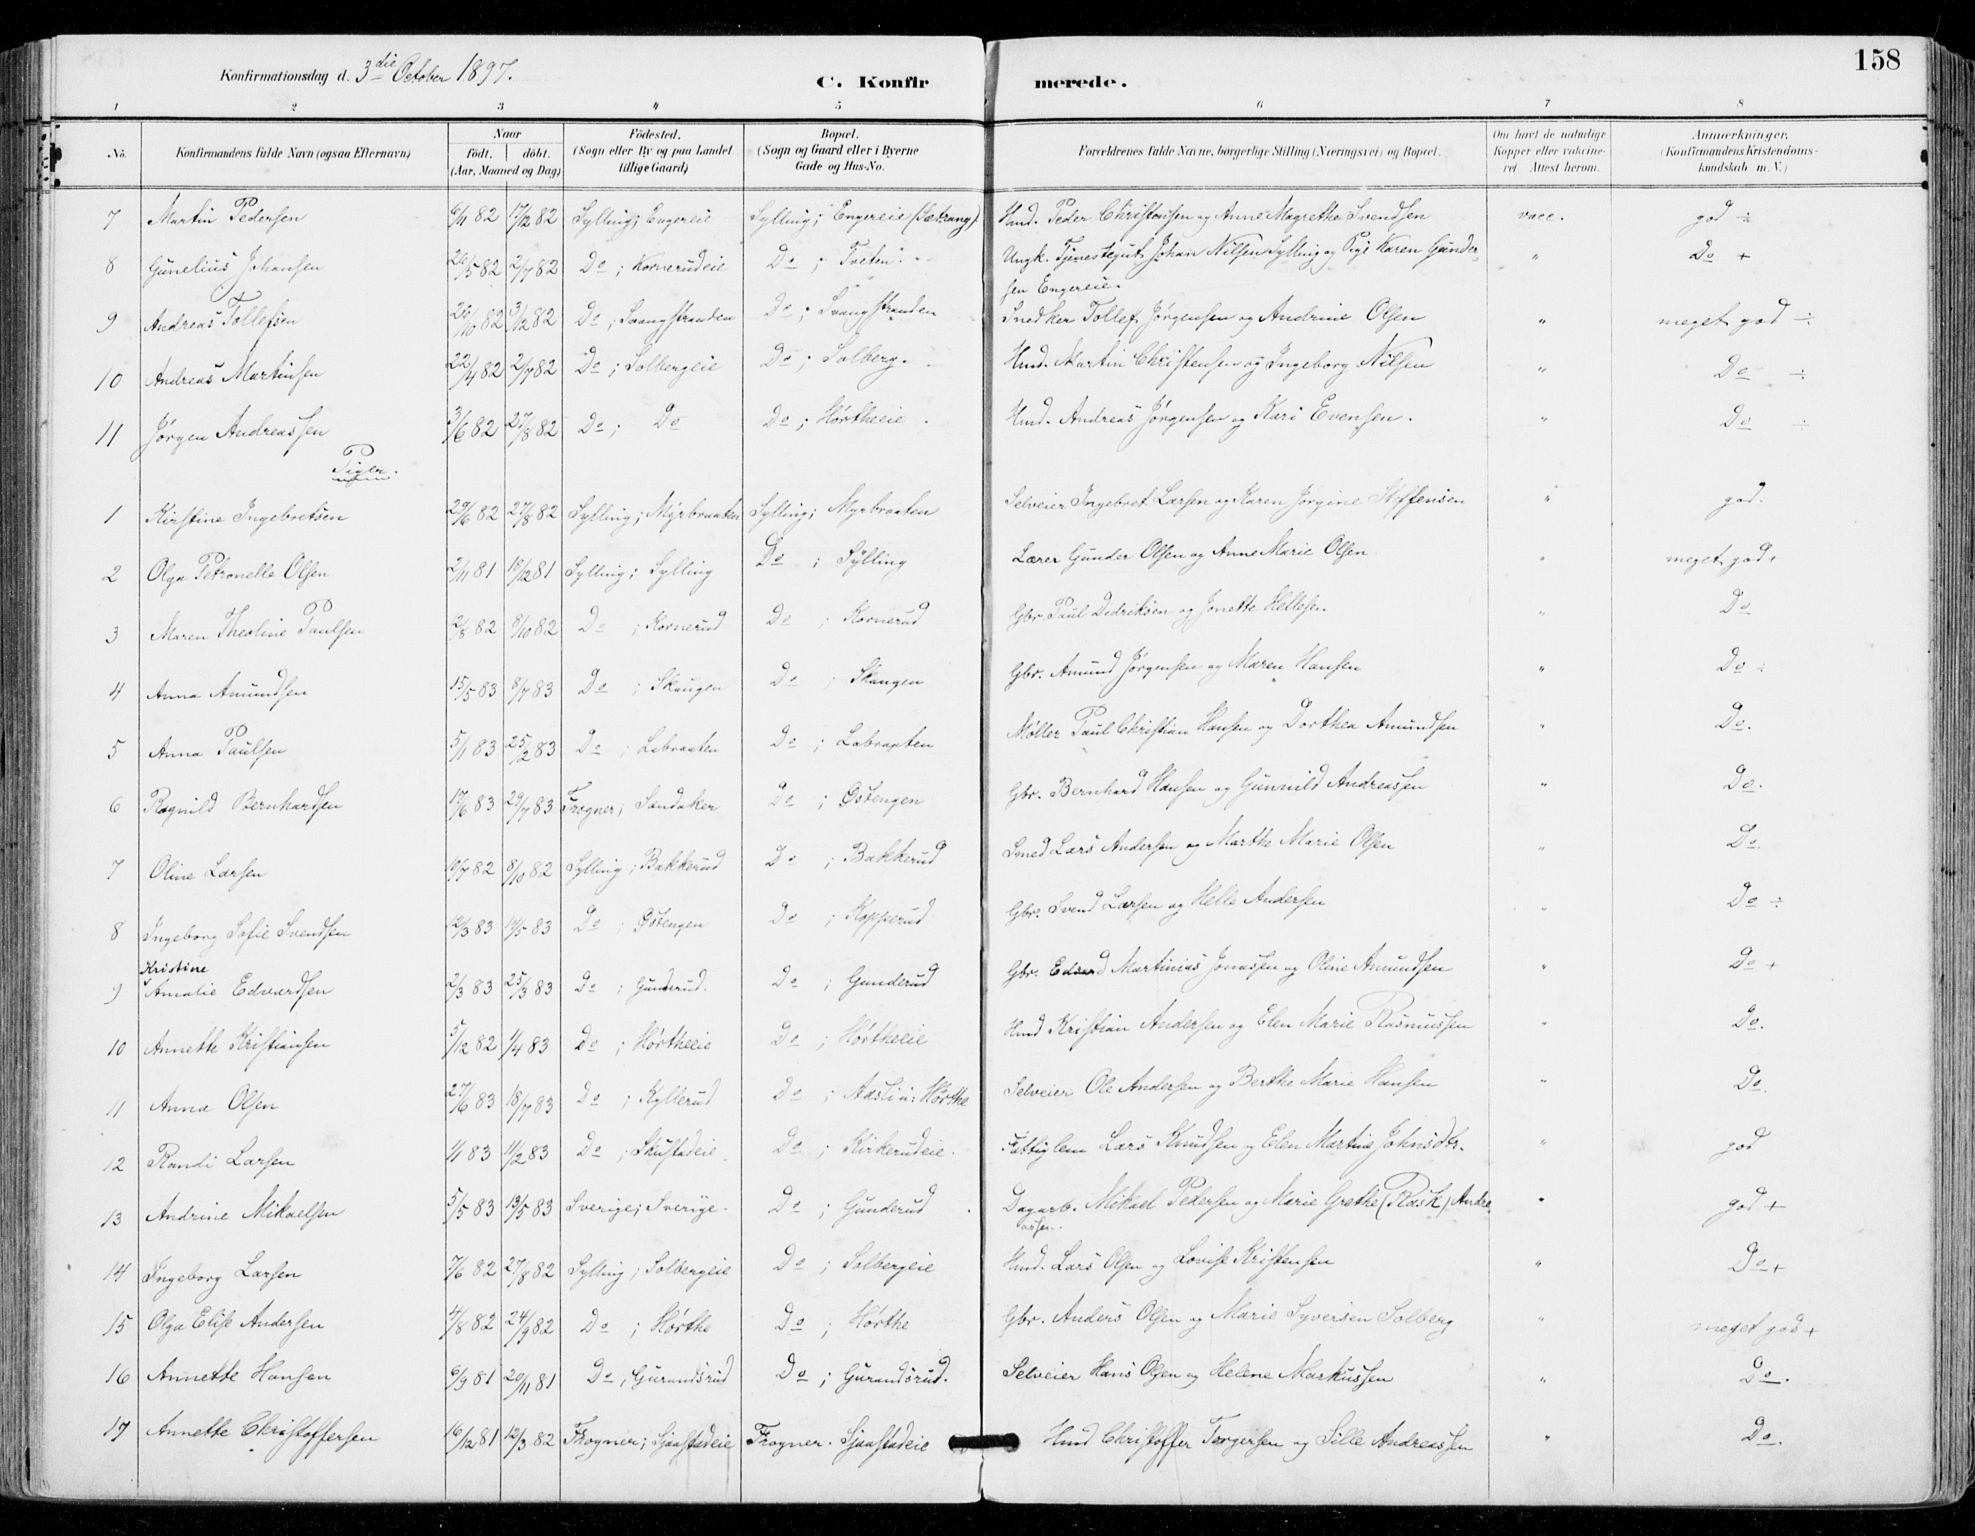 158
Konfirmationsdag d. 3die October 1897.
C. Konfirmerede.
1 2 3 4 5 6 7 8
No. Konfirmandens fulde Navn (ogsaa Efternavn) Naar födt. döbt. (Aar, Maaned og Dag) Födested. (Sogn eller By og paa Landet tillige Gaard) Bopæl. (Sogn og Gaard eller i Byerne Gade og Hus-No. Forældrenes fulde Navne, borgerlige Stilling (Næringsvei) og Bopæl. Om havt de naturlige Kopper eller vakcineret. Attest herom. Anmærkninger. (Konfirmandens Kristendomskundskab m. V.)
7 Martin Pedersen 6/11 82 17/12 82 Sylling; Engereie Sylling; Engereie (Sætrang) Hmd. Peder Christensen og Anne Magrethe Svendsen vacc. god ÷
8 Gunelius Johansen 26/5 82 2/7 82 Do ; Kornerudeie Do ; Tveten Ungk. Tjenestegut Johan Nilsen Sylling og Pige Karen Gundersen Engereie. " Do +
9 Andreas Tollefsen 26/10 82 3/12 82 Do ; Svangstranden Do ; Svangstranden Snedker Tollef Jørgensen og Andrine Olsen " meget god ÷
10 Andreas Martinsen 22/4 82 2/7 82 Do ; Solbergeie Do ; Solberg. Hmd. Martin Christensen og Ingeborg Nilsen " Do ÷
11 Jørgen Andreassen 3/6 82 27/8 82 Do ; Do Do ; Hørtheeie Hmd. Andreas Jørgensen og Kari Evensen. " Do ÷
Piger.
1 Kirstine Ingebretsen 29/6 82 27/8 82 Sylling; Myrbraaten Sylling; Myrbraaten Selveier Ingebret Larsen og Karen Jørgine Steffensen " god.
2 Olga Petronelle Olsen 2/11 81 18/12 81 Sylling; Sylling Do ; Sylling Lærer Gunder Olsen og Anne Marie Olsen " meget god +
3 Maren Theoline Paulsen 12/8 82 8/10 82 Do ; Kornerud Do ; Kornerud Gbr. Paul Didriksen og Jonette Hellesen " Do
4 Anna Amundsen 15/5 83 8/7 83 Do ; Skaugen Do ; Skaugen Gbr. Amund Jørgensen og Maren Hansen " Do ÷
5 Anna Paulsen 5/1 83 25/2 83 Do ; Labraaten Do ; Labraaten Møller Paul Christian Hansen og Dorthea Amundsen " Do.
6 Ragnild Bernhardsen 17/6 83 29/7 83 Frogner; Sandaker Do ; Østengen Gbr. Bernhard Hansen og Gunnild Andreassen " Do.
7 Oline Larsen 10/7 82 8/10 82 Sylling; Bakkerud Do ; Bakkerud Smed Lars Andersen og Marthe Marie Olsen " Do.
8 Ingeborg Sofie Svendsen 12/3 83 14/5 83 Do ; Østengen Do ; Kopperud Gbr. Svend Larsen og Helle Andersen " Do ÷
9 Kristine Amalie Edvardsen 2/3 83 25/3 83 Do ; Gunderud. Do ; Gunderud Gbr. Edvard Martinius Jonassen og Oline Amundsen " Do +
10 Annette Kristiansen 5/12 82 1/4 83 Do ; Hørtheeie Do ; Hørtheeie Hmd Kristian Andersen og Elen Marie Rasmussen " Do.
11 Anna Olsen 27/6 83 18/7 83 Do ; Kyllerud Do ; Aasli u: Hørthe Selveier Ole Andersen og Berthe Marie Hansen " Do.
12 Randi Larsen 1/1 83 11/2 83 Do ; Skustadeie Do ; Kirkerudeie. Fattiglem Lars Knudsen og Elen Martine Johnsdtr. " god
13 Andrine Mikaelsen 5/5 83 13/5 83 Sverige; Sverige. Do ; Gunderud Dagarb. Mikael Pedersen og Marie Grethe (Rask) Andreassen. " god +
14 Ingeborg Larsen 7/6 82 27/8 82 Sylling; Solbergeie Do ; Solbergeie Hmd. Lars Olsen og Lovise Kristensen " Do +
15 Olga Elise Andersen 4/8 82 24/9 82 Do ; Hørthe Do ; Hørthe Gbr. Anders Olsen og Marie Syversen Solberg " meget god +
16 Annette Hansen 6/9 81 20/11 81 Do ; Gurandsrud Do ; Gurandsrud. Selveier Hans Olsen og Helene Markussen " Do.
17 Annette Christoffersen 16/12 81 12/3 82 Frogner; Sjaastadeie Frogner. Sjaastadeie Hmd Christoffer Torgersen og Sille Andreassen " Do.